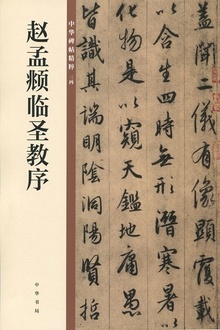 中华碑帖精粹
赵孟頫临圣教序
中华书局
蓋聞二儀有像顯覆載
以含生四時無形潛寒暑
以化物是以窺天鑑地庸愚
皆識其端明陰洞陽賢哲